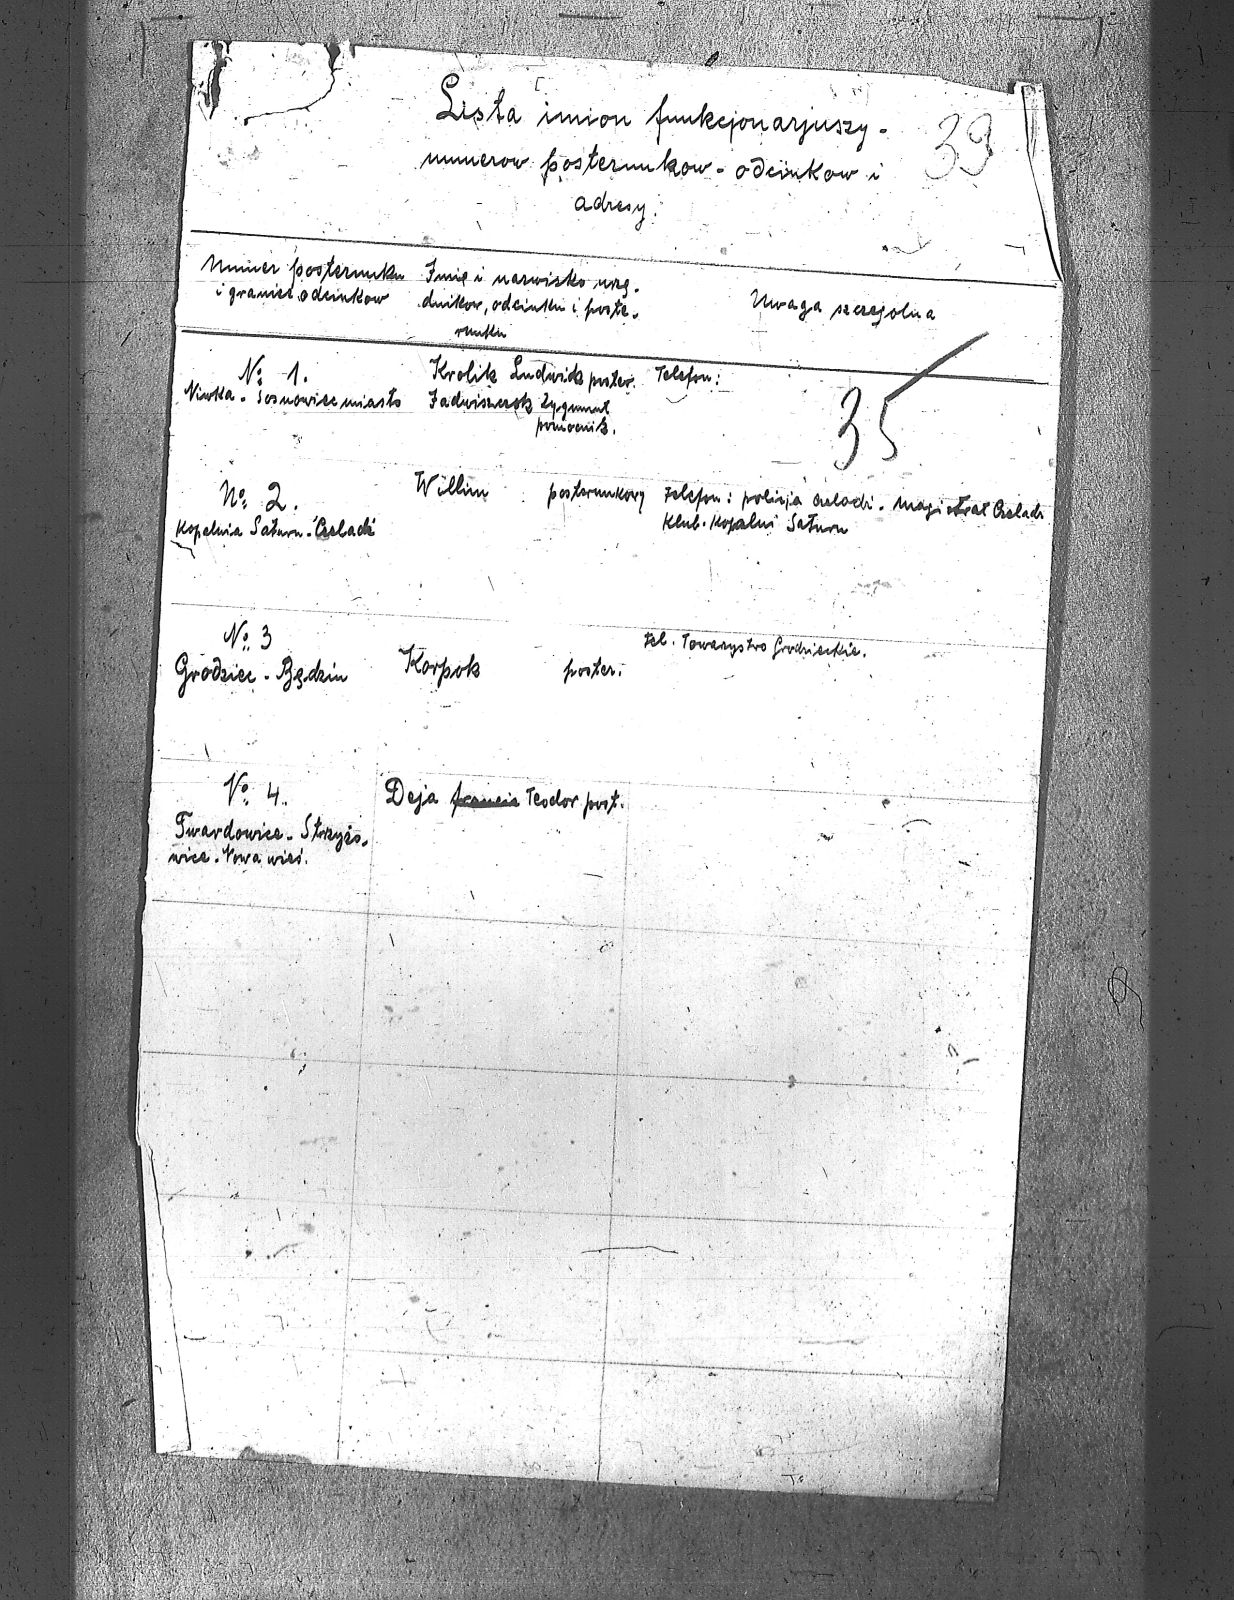 Lista imion funkcjonarjuszy -
numerow posterunkow - odcinkow i
adresy.
39
Numer posterunku
i granice odcinkow
Imię i nazwisko urzę-
dnikow, odcinku i poste-
runku
Uwaga szczegolna
No 1.
Niwka - Sosnowice miasto
Krolik Ludwik poster.
Jadwiszczok Zygmunt
pomocnik.
Telefon:
35
No 2.
Kopalnia Saturn - Czeladź
Willim posterunkowy
telefon: policja Czeladź - magistrat Czeladz
Klub - Kopalni Saturn
No 3
Grodziec - Będzin
Korpok poster.
tel. Towarzystwo Grodzieckie.
No 4.
Twardowice - Strzyżo-
wice - Nowa wieś.
Deja Teodor post.